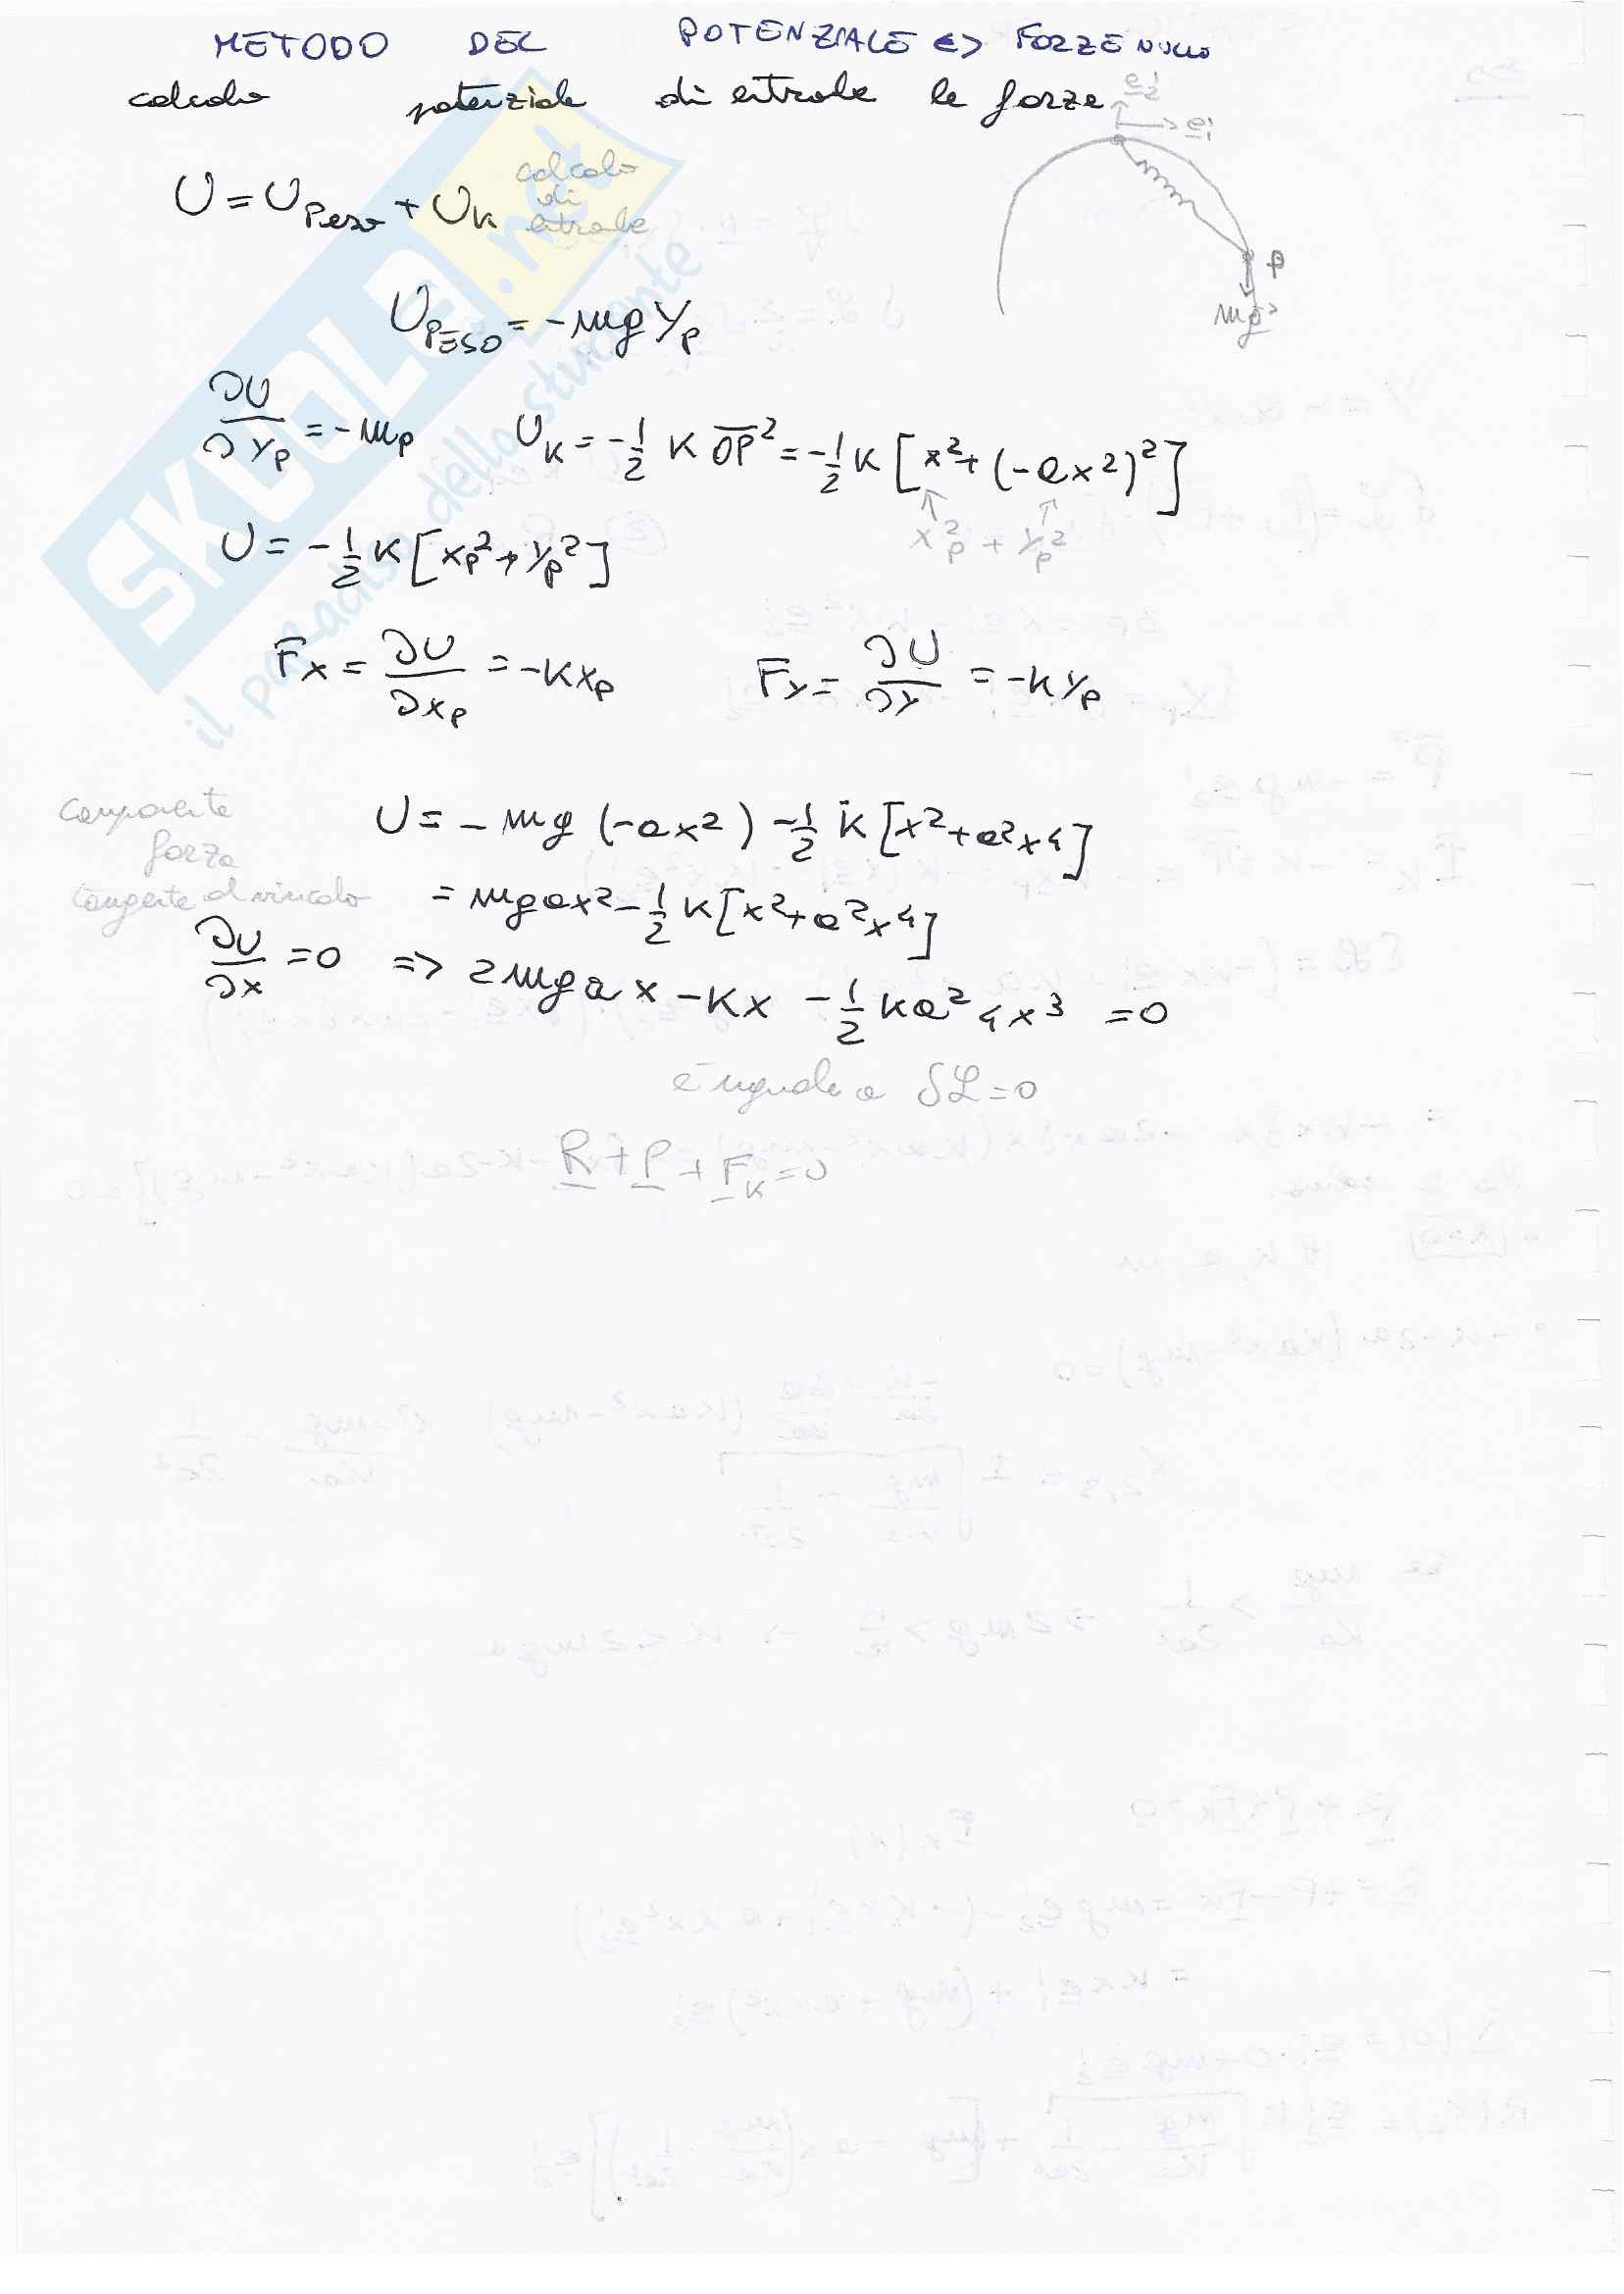 METODO DEL POTENZIALE <=> FORZE NULLO
calcolo potenziale di entrambe le forze
e2
e1
U = U_Peso + U_K calcolo di entrambe
P
mg
U_PESO = -mg y_P
∂U/∂y_P = -m_P U_K = -1/2 K OP² = -1/2 K [x² + (-ax²)²]
↑ ↑
x_P² + y_P²
U = -1/2 K [x_P² + y_P²]
F_x = ∂U/∂x_P = -K x_P F_y = ∂U/∂y = -K y_P
componente
forza
tangente al vincolo
U = -mg (-ax²) - 1/2 K [x² + a²x⁴]
= mgax² - 1/2 K [x² + a²x⁴]
∂U/∂x = 0 => 2mgax - Kx - 1/2 Ka² 4x³ = 0
è uguale a δL = 0
R + P + F_K = 0
SKUOLA.net
il paradiso dello studente